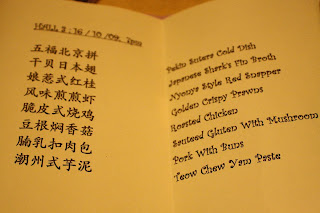 HALL 2 : 16 / 10 /09, 7pm
五福北京拼
干贝日本翅
娘惹式红桂
风味煎煎虾
脆皮式烧鸡
豆根焖香菇
腩乳扣肉包
潮州式芋泥
Pekin Sutera Cold Dish
Japanese Shark's Fin Broth
Nyonya Style Red Snapper
Golden Crispy Prawns
Roasted Chicken
Sauteed Gluten With Mushroom
Pork With Buns
Teow Chew Yam Paste